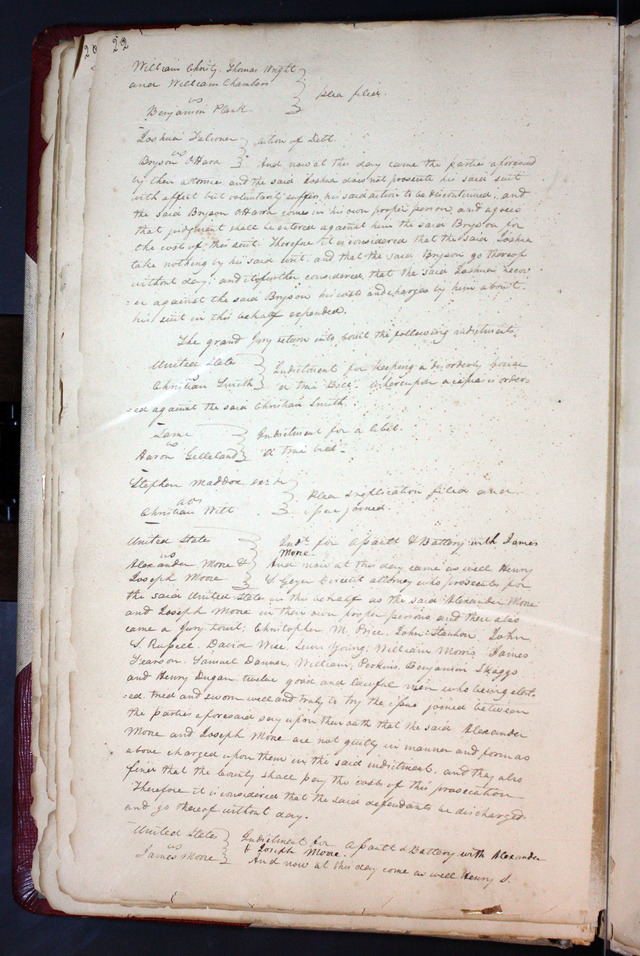 20 22
William Christy, Thomas Wright
and William Chambers
vs } plea filed.
Benjamin Plank
Joshua Falconer } action of Debt
vs
Bryson O'Hara } And now at this day came the parties aforesaid
by their attornies and the said Joshua does not prosecute his said suit
with effect but voluntarily suffers his said action to be discontinued, and
the said Bryson O'Hara comes in his own proper person, and agrees
that judgment shall be entered against him the said Bryson for
the cost of this suit. Therefore it is considered that the said Joshua
take nothing by his said writ; and that the said Bryson go thereof
without day; and it further considered that the said Joshua recov-
er against the said Bryson his costs and charges by him about
his suit in this behalf expended.
The grand Jury return into Court the following indictments.
United State } Indictment for keeping a disorderly house
vs
Christian Smith } "a true Bill." Whereupon a capias is order-
-ed against the said Christian Smith.
Same } Indictment for a libel.
vs
Aaron Gelleland } "A true bill"
Stephen Maddox } Plea & replication filed and
vs
Christian Witt } issue joined.
United State } Indt. for Assault & Battery with James
Moore
vs
Alexander Moore & } And now at this day came as well Henry
Joseph Moore } S. Geyer Circuit attorney who prosecutes for
the said United State in this behalf as the said Alexander Moore
and Joseph Moore in their own proper persons and then also
came a Jury towit; Christopher M. Price, John Stanton, John
S. Russell, David Wise, Levi Young, William Morris, James
Pearson, Samuel Danner, William Perkins, Benjamin Skaggs
and Henry Dugan twelve good and lawful men who being elect-
ed tried and sworn well and truly to try the issue joined between
the parties aforesaid say upon their oath that the said Alexander
Moore and Joseph Moore are not guilty in manner and form as
above charged upon them in the said indictment, and they also
find that the County shall pay the costs of this prosecution
Therefore it is considered that the said defendants be discharged
and go thereof without day.
United State } Indictment for Assault & Battery with Alexander
vs & Joseph Moore.
James Moore } And now at this day come as well Henry S.